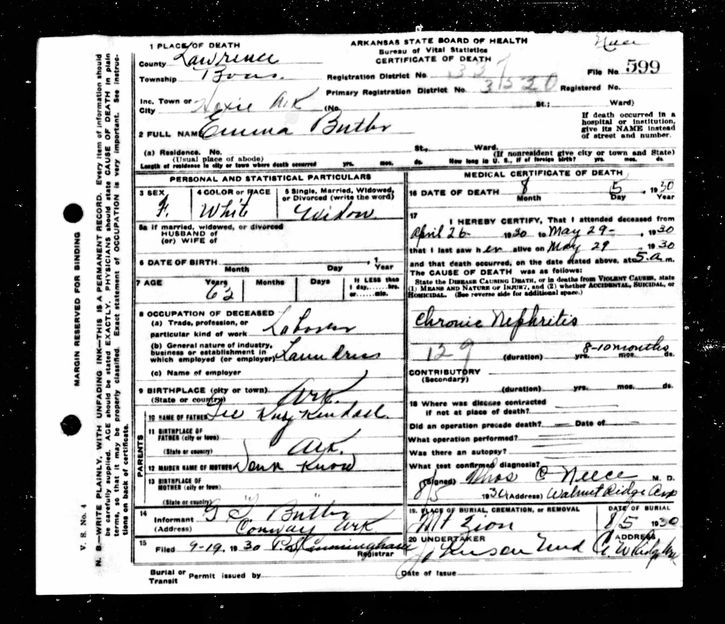 ARKANSAS STATE BOARD OF HEALTH
Bureau of Vital Statistics
CERTIFICATE OF DEATH
1 PLACE OF DEATH
County Lawrence
Township
Registration District No. 337 File No. 599
Primary Registration District No. 3520 Registered No.
Inc. Town or
City Ark (No. St.; Ward)
If death occurred in a hospital or institution, give its NAME instead of street and number.
2 FULL NAME Emma Butler
(a) Residence. No. St., Ward.
(Usual place of abode) (If nonresident give city or town and State)
Length of residence in city or town where death occurred yrs. mos. ds. How long in U. S., if of foreign birth? yrs. mos. ds.
PERSONAL AND STATISTICAL PARTICULARS
3 SEX 4 COLOR or RACE 5 Single, Married, Widowed, or Divorced (write the word)
F. White Widow
5a If married, widowed, or divorced
HUSBAND of
(or) WIFE of
6 DATE OF BIRTH
Month Day Year
7 AGE Years Months Days If LESS than
1 day,.....hrs.
or.....min.
62
8 OCCUPATION OF DECEASED
(a) Trade, profession, or
particular kind of work Laborer
(b) General nature of industry,
business or establishment in
which employed (or employer)
(c) Name of employer
9 BIRTHPLACE (city or town)
(State or country) Ark.
PARENTS
10 NAME OF FATHER Kendall
11 BIRTHPLACE OF
FATHER (city or town)
(State or country) Ark.
12 MAIDEN NAME OF MOTHER Dont Know
13 BIRTHPLACE OF
MOTHER (city or town)
(State or country)
14
Informant Butler
Conway Ark
15
Filed 9-19, 1930 Cunningham
Registrar
Burial or
Transit Permit issued by Date of Issue
MEDICAL CERTIFICATE OF DEATH
16 DATE OF DEATH 8 5 1930
Month Day Year
17
I HEREBY CERTIFY, That I attended deceased from
April 26 1930 to May 29 - , 1930
that I last saw her alive on May 29 , 1930
and that death occurred, on the date stated above, at 5 a. m.
The CAUSE OF DEATH was as follows:
State the DISEASE CAUSING DEATH, or in deaths from VIOLENT CAUSES, state
(1) MEANS AND NATURE OF INJURY, and (2) whether ACCIDENTAL, SUICIDAL, or
HOMICIDAL. (See reverse side for additional space.)
Chronic Nephritis
129
(duration) yrs. 8-10 months mos. ds.
CONTRIBUTORY
(Secondary)
(duration) yrs. mos. ds.
18 Where was disease contracted
if not at place of death?
Did an operation precede death? Date of
What operation performed?
Was there an autopsy?
What test confirmed diagnosis?
(Signed) Thos C Neece M. D.
8/5 1930 (Address) Walnut Ridge Ark
19. PLACE OF BURIAL, CREMATION, OR REMOVAL DATE OF BURIAL
Mt Zion 8/5 1930
20 UNDERTAKER ADDRESS
Johnson Und Co W Ridge Ark
MARGIN RESERVED FOR BINDING
N. B.—WRITE PLAINLY, WITH UNFADING INK—THIS IS A PERMANENT RECORD. Every item of information should
be carefully supplied. AGE should be stated EXACTLY. PHYSICIANS should state CAUSE OF DEATH in plain
terms, so that it may be properly classified. Exact statement of OCCUPATION is very important. See instruc-
tions on back of certificate.
V. S. No. 4